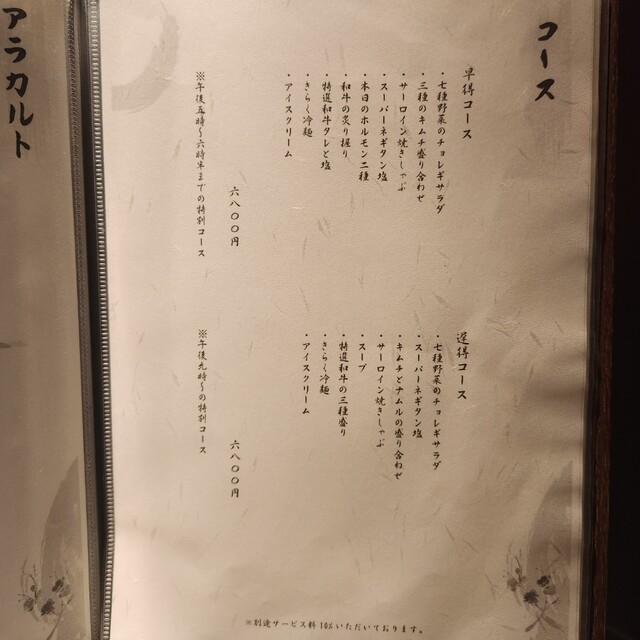 コース
早得コース
・七種野菜のチョレギサラダ
・三種のキムチ盛り合わせ
・サーロイン焼きしゃぶ
・スーパーネギタン塩
・本日のホルモン二種
・和牛の炙り握り
・特選和牛タレと塩
・きらく冷麺
・アイスクリーム
六八〇〇円
※午後五時〜六時半までの特別コース
遅得コース
・七種野菜のチョレギサラダ
・スーパーネギタン塩
・キムチとナムルの盛り合わせ
・サーロイン焼きしゃぶ
・スープ
・特選和牛の三種盛り
・きらく冷麺
・アイスクリーム
六八〇〇円
※午後九時〜の特別コース
※別途サービス料10%いただいております。
アラカルト